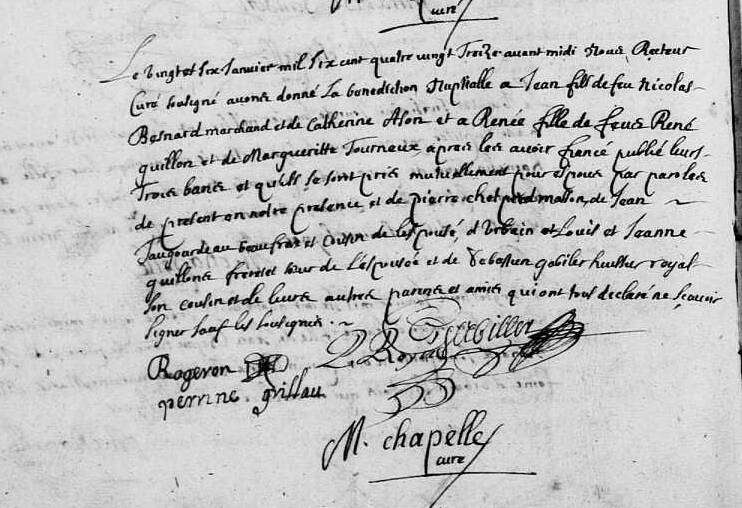 curé
Le vingt et six Janvier mil six cent quatre vingt Treize avant midi Nous Recteur
Curé soussigné avons donné La benediction Nuptialle a Jean fils de feu Nicolas
Besnard marchand et de Catherine Ason et a Renée fille de feus René
quillon et de Margueritte Tourneux, apres les avoir fiancé publié leurs
Trois bans et quils se sont pris mutuellement pour espoux par paroles
de present en notre presence et de pierre de Jean
Jaugourdeau beaufrere et cousin de lespousé, d'Urbain et Louis et Jeanne
quillons freres et seur de L'espousée et de Sebastien gabiler huissier royal
son cousin et de leurs autres parens et amis qui ont tous declaré ne scavoir
signer sauf les sousignes. ~
Rogeron
Royau
perrine grillau
M. chapelle
curé